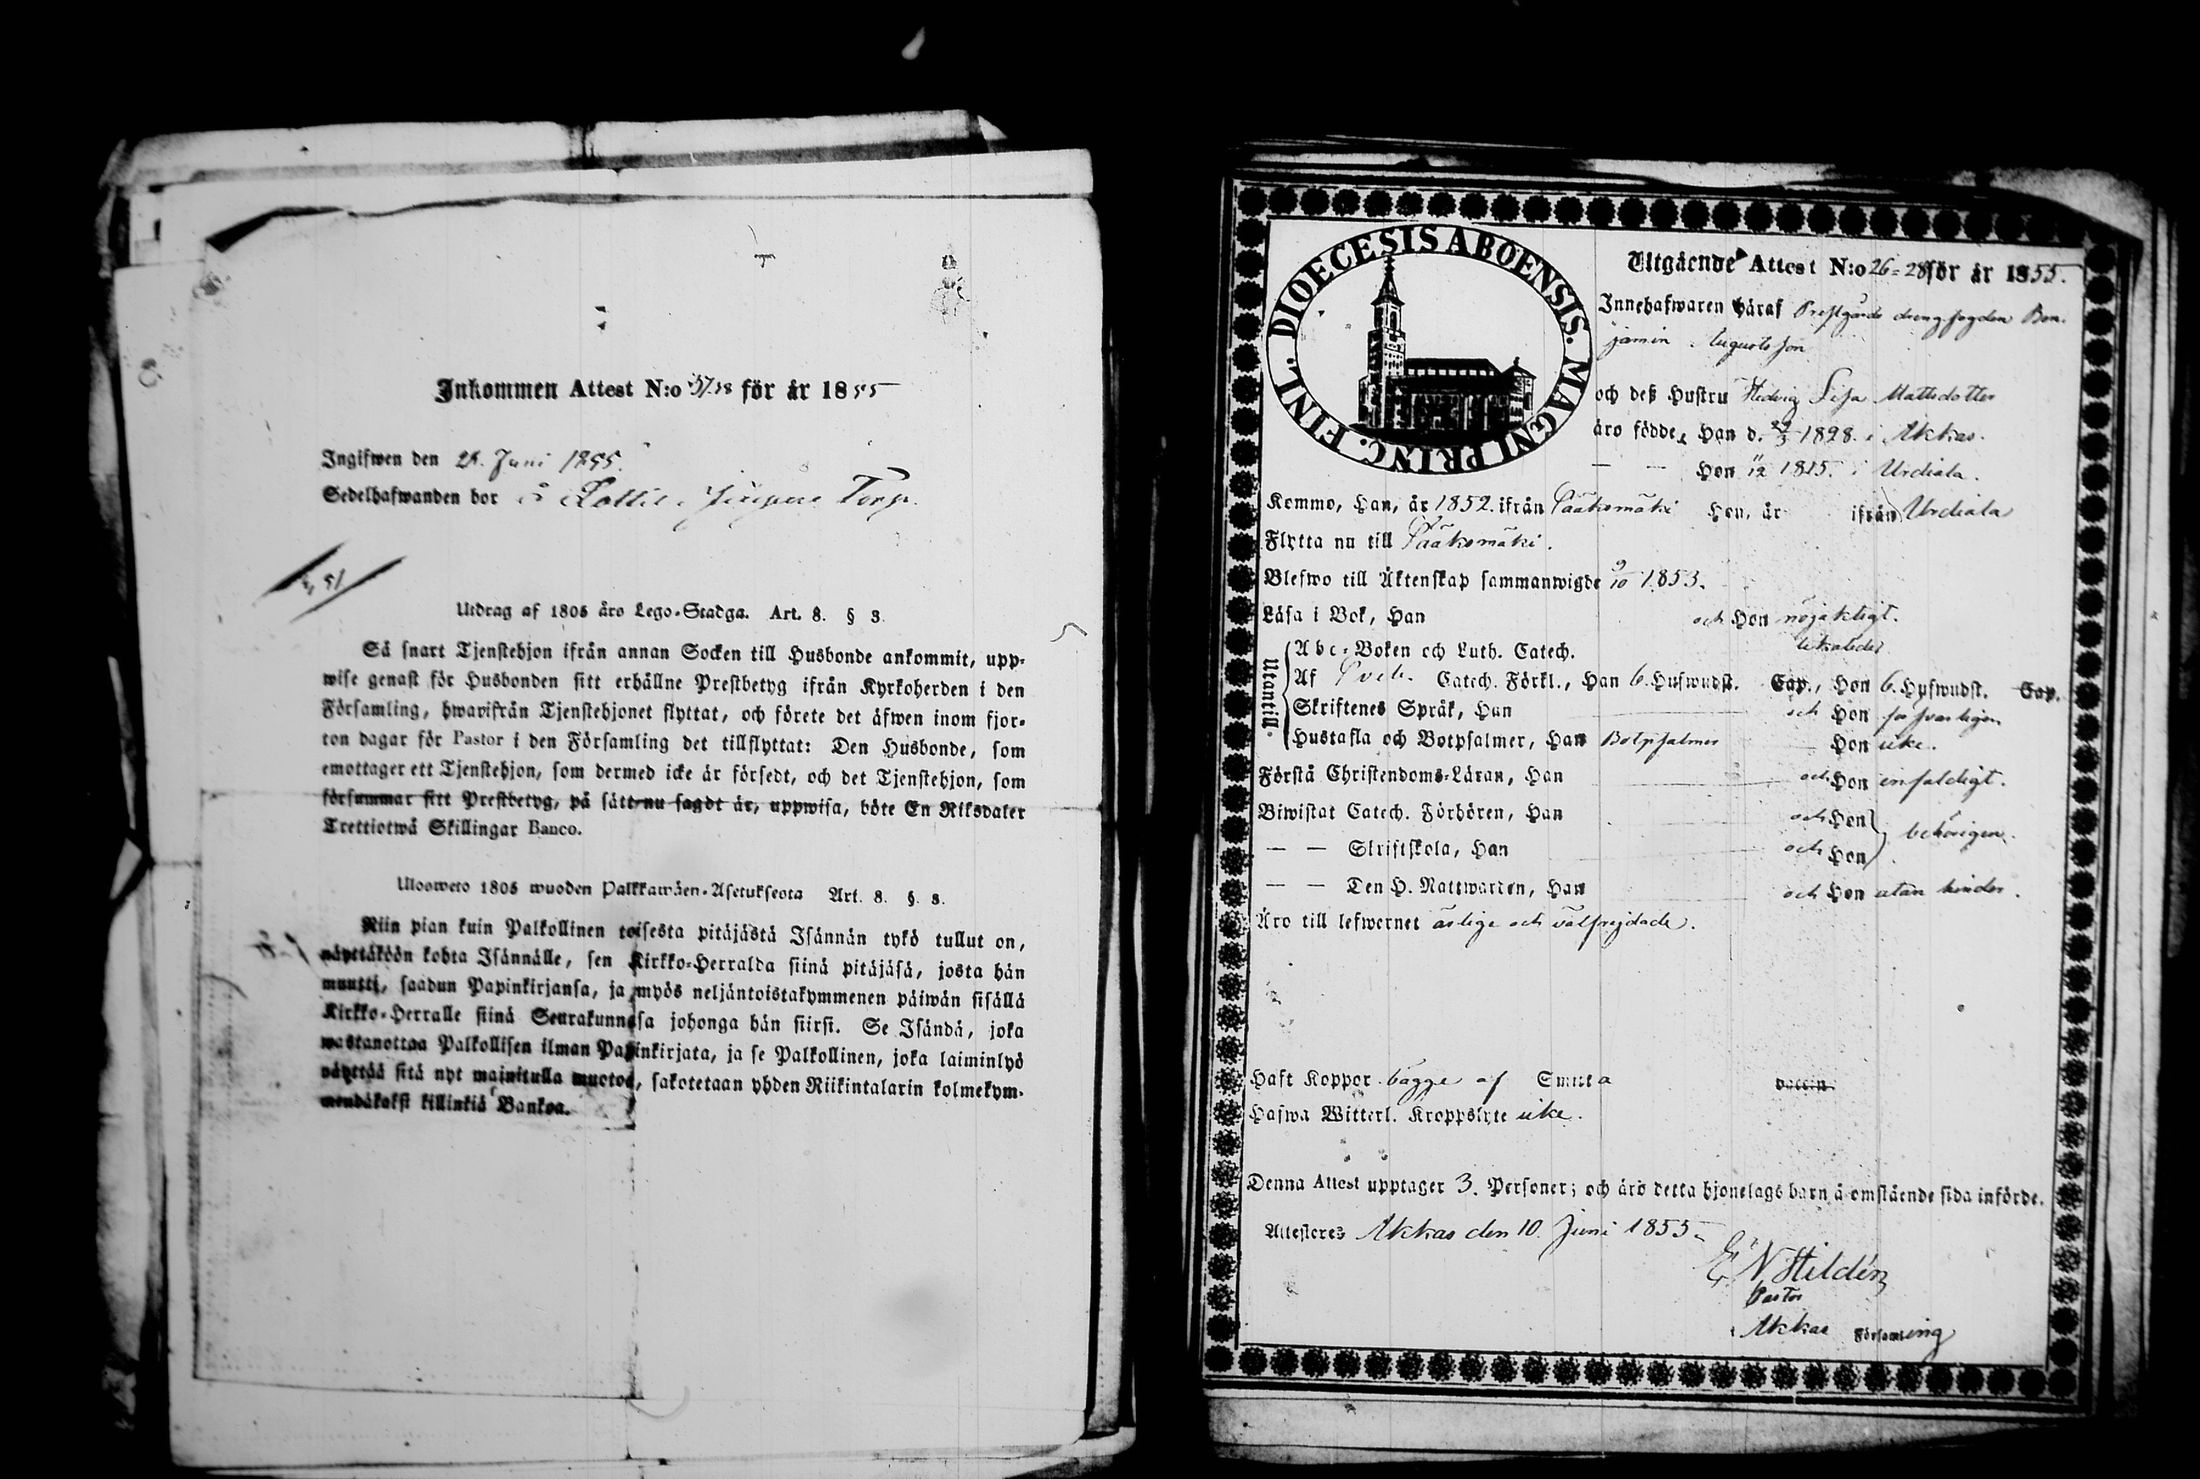 Inkommen Attest N:o 37.38 för år 1855
Ingifwen den 28. Juni 1855.
Sedelhafwanden bor å Torp.
Utdrag af 1805 års Lego-Stadga. Art. 8. § 3.
Så snart Tjenstehjon ifrån annan Socken till Husbonde ankommit, upp-
wise genast för Husbonden sitt erhållne Prestbetyg ifrån Kyrkoherden i den
Församling, hwarifrån Tjenstehjonet flyttat, och förete det äfwen inom fjor-
ton dagar för Pastor i den Församling det tillflyttat: Den Husbonde, som
emottager ett Tjenstehjon, som dermed icke är försedt, och det Tjenstehjon, som
försummar sitt Prestbetyg, på sätt nu sagdt är, uppwisa, böte En Riksdaler
Trettiotwå Skillingar Banco.
Ulosweto 1805 wuoden Palkkawäen-Asetuksesta Art. 8. §. 3.
Niin pian kuin Palkollinen toisesta pitäjästä Isännän tykö tullut on,
näyttäköön kohta Isännälle, sen Kirkko-Herralda siinä pitäjäsä, josta hän
muutti, saadun Papinkirjansa, ja myös neljäntoistakymmenen päiwän sisällä
Kirkko-Herralle siinä Seurakunnasa johonga hän siirsi. Se Isändä, joka
wastanottaa Palkollisen ilman Papinkirjata, ja se Palkollinen, joka laiminlyö
näyttää sitä nyt mainitulla muotoa, sakotetaan yhden Riikintalarin kolmekym-
mendäkaksi killinkiä Bankoa.
DIOECESIS ABOENSIS. MAGNI PRINC. FINL.
Utgående Attest N:o 26-28 för år 1855.
Innehafwaren häraf Prestgårds drengfogden Ben-
jamin Augustsson
och deß Hustru Hedvig Lisa Mattsdotter
äro födde, Han d. 1828. i Akkas.
— — Hon 1815. i Urdiala.
Kommo, Han, år 1852. ifrån Pääksmäki Hon, år ifrån Urdiala
Flytta nu till Pääksmäki.
Blefwo till Äktenskap sammanwigde 9/10 1853.
Läsa i Bok, Han och Hon nöjaktigt.
Utantill.
Abc-Boken och Luth. Catech.
Af Catech. Förkl., Han 6. Hufwudst. Cap., Hon 6. Hufwudst. Cap.
Skriftenes Språk, Han och Hon försvarligen
Hustafla och Botpsalmer, Han Botpsalmer Hon icke.
Förstå Christendoms-Läran, Han och Hon enfaldigt.
Biwistat Catech. Förhören, Han och Hon behörigen.
— — Skriftskola, Han och Hon
— — Den H. Nattwarden, Han och Hon utan hinder.
Äro till lefwernet ärlige och välfrejdade.
Haft Koppor bägge af Smitta vaccin.
Hafwa Witterl. Kroppslyte icke.
Denna Attest upptager 3. Personer; och äro detta hjonelags barn å omstående sida införde.
Attesteras Akkas den 10. Juni 1855.
Hildén
Pastor
i Akkas Församling